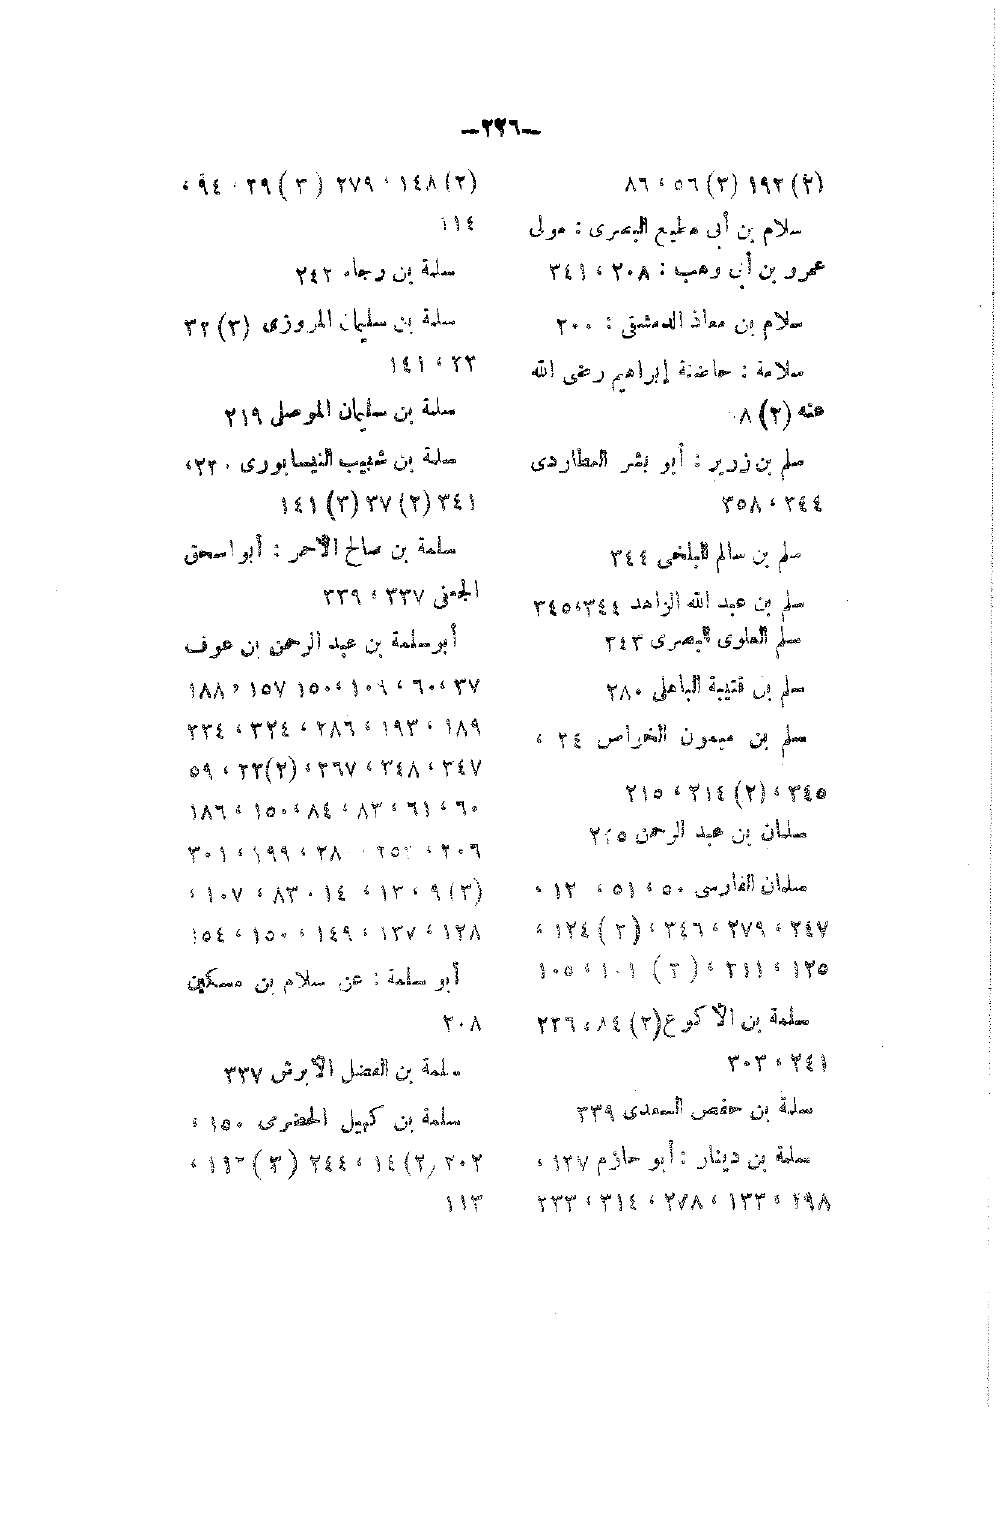 —٢٢٦—
(٢) ١٩٢ (٣) ٥٦ ، ٨٦
سلام بن أبى مطيع البصرى : مولى
عمرو بن أبى وهب : ٢٠٨ ، ٣٤١
سلام بن معاذ الدمشقى : ٢٠٠
سلامة : حاضنة إبراهيم رضى الله
عنه (٢) ٨
سلم بن زرير : أبو بشر العطاردى
٣٤٤ ، ٣٥٨
سلم بن سالم البلخى ٣٤٤
سلم بن عبد الله الزاهد ٣٤٤،٣٤٥
سلم العلوى البصرى ٣٤٣
سلم بن قتيبة الباهلى ٢٨٠
سلم بن ميمون الخواص ٢٤ ،
٣٤٥ ، (٢) ٢١٤ ، ٢١٥
سلمان بن عبد الرحمن
سلمان الفارسى ٥٠ ، ٥١ ، ١٢ ،
٢٤٧ ، ٢٧٩ ، ٣٤٦ ، (٢) ١٢٤ ،
١٢٥ ، ٢١١ ، (٣) ١٠١ ، ١٠٥
سلمة بن الأكوع (٢) ٨٤ ، ٢٢٦
٢٤١ ، ٣٠٣
سلمة بن حفص السعدى ٣٣٩
سلمة بن دينار : أبو حازم ١٢٧ ،
٢٩٨ ، ١٣٣ ، ٢٧٨ ، ٣١٤ ، ٢٣٣
(٢) ١٤٨ ، ٢٧٩ (٣) ٢٩ ، ٩٤ ،
١١٤
سلمة بن رجاء ٢٤٢
سلمة بن سليمان المروزى (٣) ٣٢
٢٣ ، ١٤١
سلمة بن سليمان الموصلى ٢١٩
سلمة بن شبيب النيسابورى ٢٢٠،
٣٤١ (٢) ٣٧ (٣) ١٤١
سلمة بن صالح الأحمر : أبو اسحق
الجعفى ٣٣٧ ، ٣٣٩
أبو سلمة بن عبد الرحمن بن عوف
٣٧ ، ٦٠ ، ١٠٩ ، ١٥٠ ١٥٧ ، ١٨٨
١٨٩ ، ١٩٣ ، ٢٨٦ ، ٣٢٤ ، ٢٣٤
٣٤٧ ، ٣٤٨ ، ٣٦٧ ، (٢) ٢٣ ، ٥٩
٦٠ ، ٦١ ، ٨٣ ، ٨٤ ، ١٥٠ ، ١٨٦
٢٠٦ ، ٢٥٢ ٢٨٠ ، ١٩٩ ، ٣٠١
(٣) ٩ ، ١٣ ، ١٤ ، ٨٣ ، ١٠٧ ،
١٢٨ ، ١٣٧ ، ١٤٩ ، ١٥٠ ، ١٥٤
أبو سلمة : عن سلام بن مسكين
٢٠٨
سلمة بن الفضل الأبرش ٣٣٧
سلمة بن كهيل الحضرى ١٥٠ ،
٢٠٢ ، (٢) ١٤ ، ٢٤٤ (٣) ،
١١٣